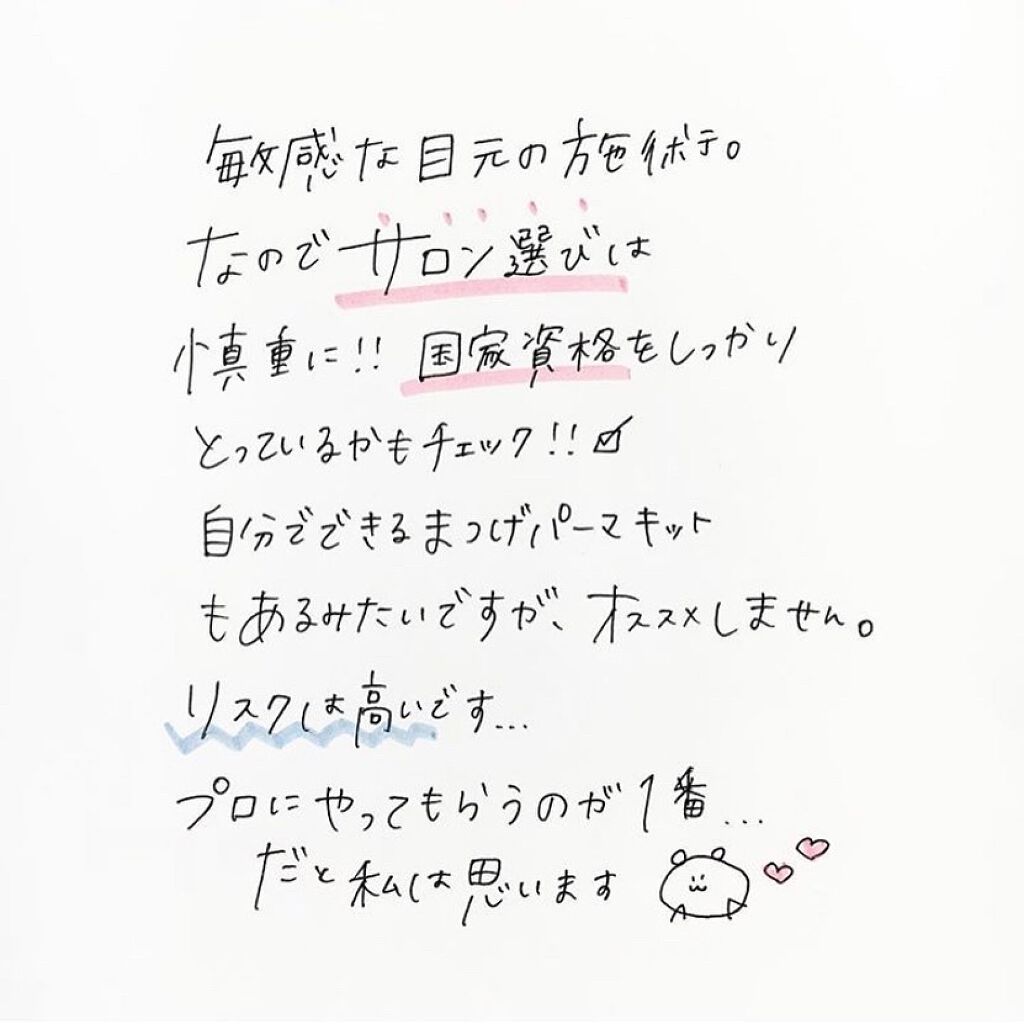 敏感な目元の施術デ。
なのでサロン選びは
慎重に!! 国家資格をしっかり
とっているかもチェック!!☑
自分でできるまつげパーマキット
もあるみたいですが、オススメしません。
リスクは高いです...
プロにやってもらうのが1番...
だと私は思います